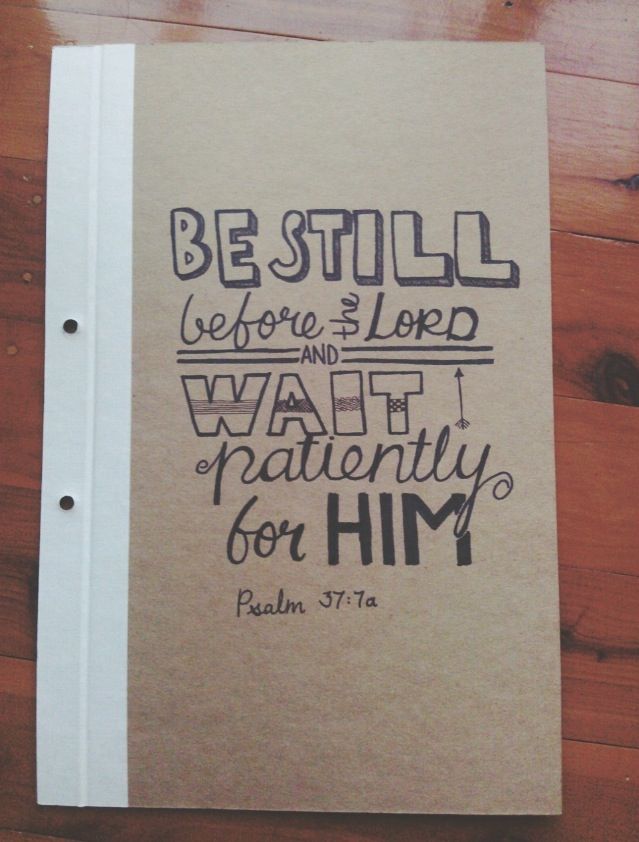 BE STILL
before the LORD
AND
WAIT
patiently
for HIM
Psalm 37:7a